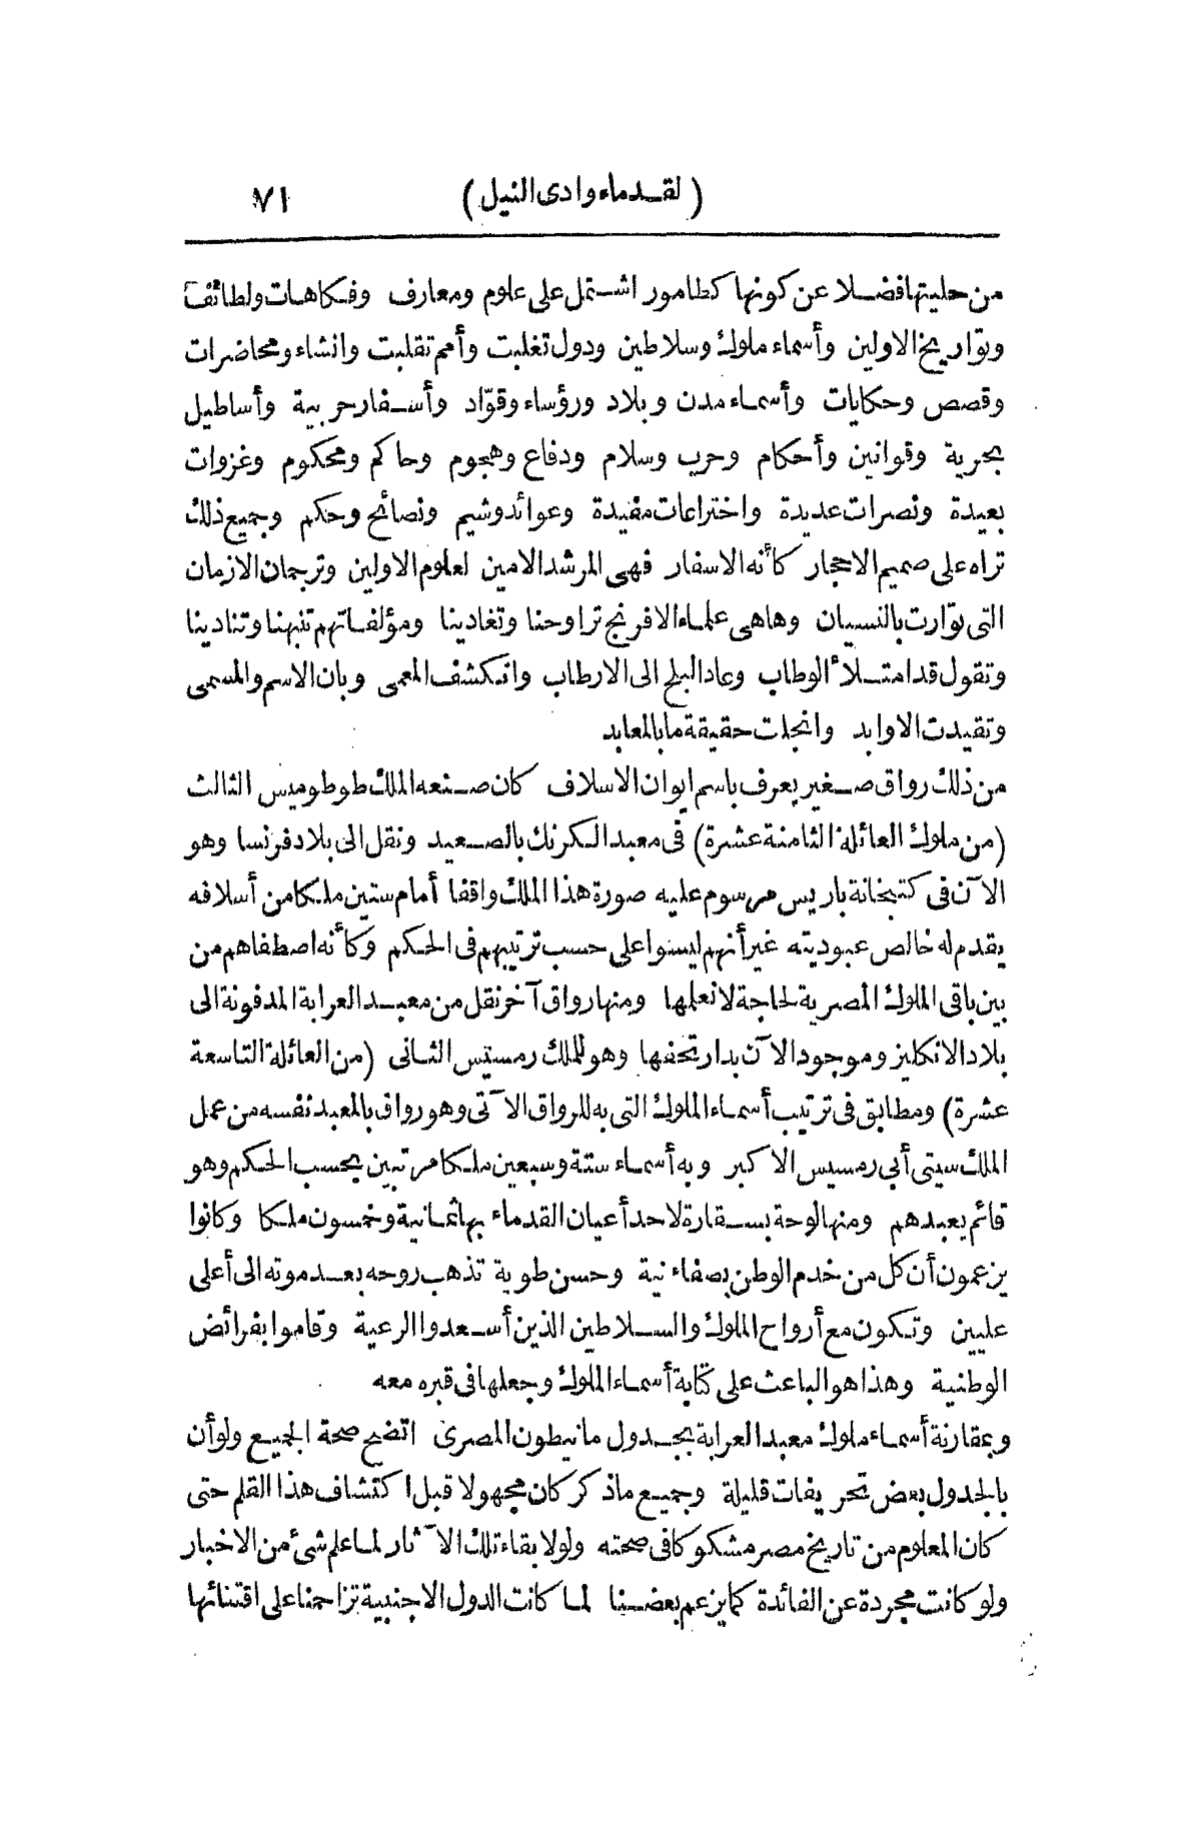 (لقدماء وادى النيل) ٧١
من حليتها فضلا عن كونها كطامور اشتمل على علوم ومعارف وفكاهات ولطائف
وتواريخ الاولين وأسماء ملوك وسلاطين ودول تغلبت وأمم تقلبت وانشاء ومحاضرات
وقصص وحكايات وأسماء مدن وبلاد ورؤساء وقوّاد وأسفار حربية وأساطيل
بحرية وقوانين وأحكام وحرب وسلام ودفاع وهجوم وحاكم ومحكوم وغزوات
بعيدة ونصرات عديدة واختراعات مفيدة وعوائد وشيم ونصائح وحكم وجميع ذلك
تراه على صميم الاحجار كأنه الاسفار فهى المرشد الامين لعلوم الاولين وترجمان الازمان
التى توّارت بالنسيان وهاهى علماء الافرنج تراوحنا وتغادينا ومؤلفاتهم تنبهنا وتنادينا
وتقول قد امتلأ الوطاب وعاد البلح الى الارطاب وانكشف المعمى وبان الاسم والمسمى
وتقيدت الاوابد وانجلت حقيقة ما بالمعابد
من ذلك رواق صغير يعرف باسم ايوان الاسلاف كان صنعه الملك طوطوميس الثالث
(من ملوك العائلة الثامنة عشرة) فى معبد الكرنك بالصعيد ونقل الى بلاد فرنسا وهو
الآن فى كتبخانة باريس مرسوم عليه صورة هذا الملك واقفا أمام ستين ملكا من أسلافه
يقدم له خالص عبوديته غير أنهم ليسوا على حسب ترتيبهم فى الحكم وكأنه اصطفاهم من
بين باقى الملوك المصرية لحاجة لا نعلمها ومنها رواق آخر نقل من معبد العرابة المدفونة الى
بلاد الانكليز وموجود الآن بدار تحفها وهو للملك رمسيس الثانى (من العائلة التاسعة
عشرة) ومطابق فى ترتيب أسماء الملوك التى به للرواق الآتى وهو رواق بالمعبد نفسه من عمل
الملك سيتى أبى رمسيس الاكبر وبه أسماء ستة وسبعين ملكا مرتبين بحسب الحكم وهو
قائم بعبدهم ومنها لوحة بسقارة لاحد أعيان القدماء بها ثمانية وخمسون ملكا وكانوا
يزعمون أن كل من خدم الوطن بصفاء نية وحسن طوية تذهب روحه بعد موته الى أعلى
عليين وتكون مع أرواح الملوك والسلاطين الذين أسعدوا الرعية وقاموا بفرائض
الوطنية وهذا هو الباعث على كتابة أسماء الملوك وجعلها فى قبره معه
وبمقارنة أسماء ملوك معبد العرابة بجدول مانيطون المصرى اتضح صحة الجميع ولو أن
بالجدول بعض تحريفات قليلة وجميع ماذكر كان مجهولا قبل اكتشاف هذا القلم حتى
كان المعلوم من تاريخ مصر مشكوكا فى صحته ولولا بقاء تلك الآثار لما علم شئ من الاخبار
ولو كانت مجردة عن الفائدة كما يزعم بعضنا لما كانت الدول الاجنبية تزاحمنا على اقتنائها